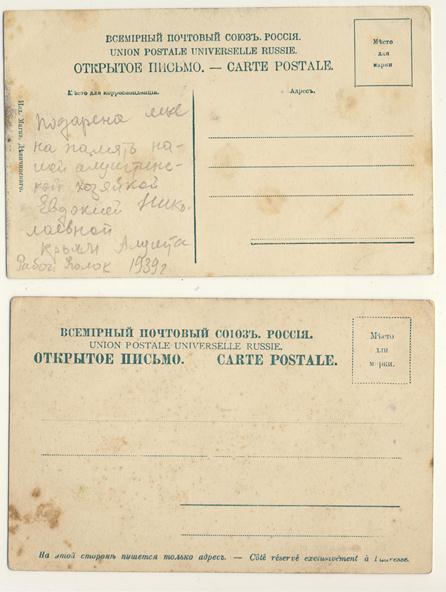 ВСЕМІРНЫЙ ПОЧТОВЫЙ СОЮЗЪ. РОССІЯ.
UNION POSTALE UNIVERSELLE RUSSIE.
ОТКРЫТОЕ ПИСЬМО. — CARTE POSTALE.
Мѣсто
для
марки
Мѣсто для корреспонденціи.
Адресъ.
Изд. Магаз.
Подарена мне
на память на-
шей алуштинс-
кой хозяйкой
Евдокией Нико
лаевной
Крым Алушта
1939 г
ВСЕМІРНЫЙ ПОЧТОВЫЙ СОЮЗЪ. РОССІЯ.
UNION POSTALE UNIVERSELLE RUSSIE.
ОТКРЫТОЕ ПИСЬМО. CARTE POSTALE.
Мѣсто
для
марки.
На этой сторонѣ пишется только адресъ. — Côté réservé exclusivement à l'adresse.